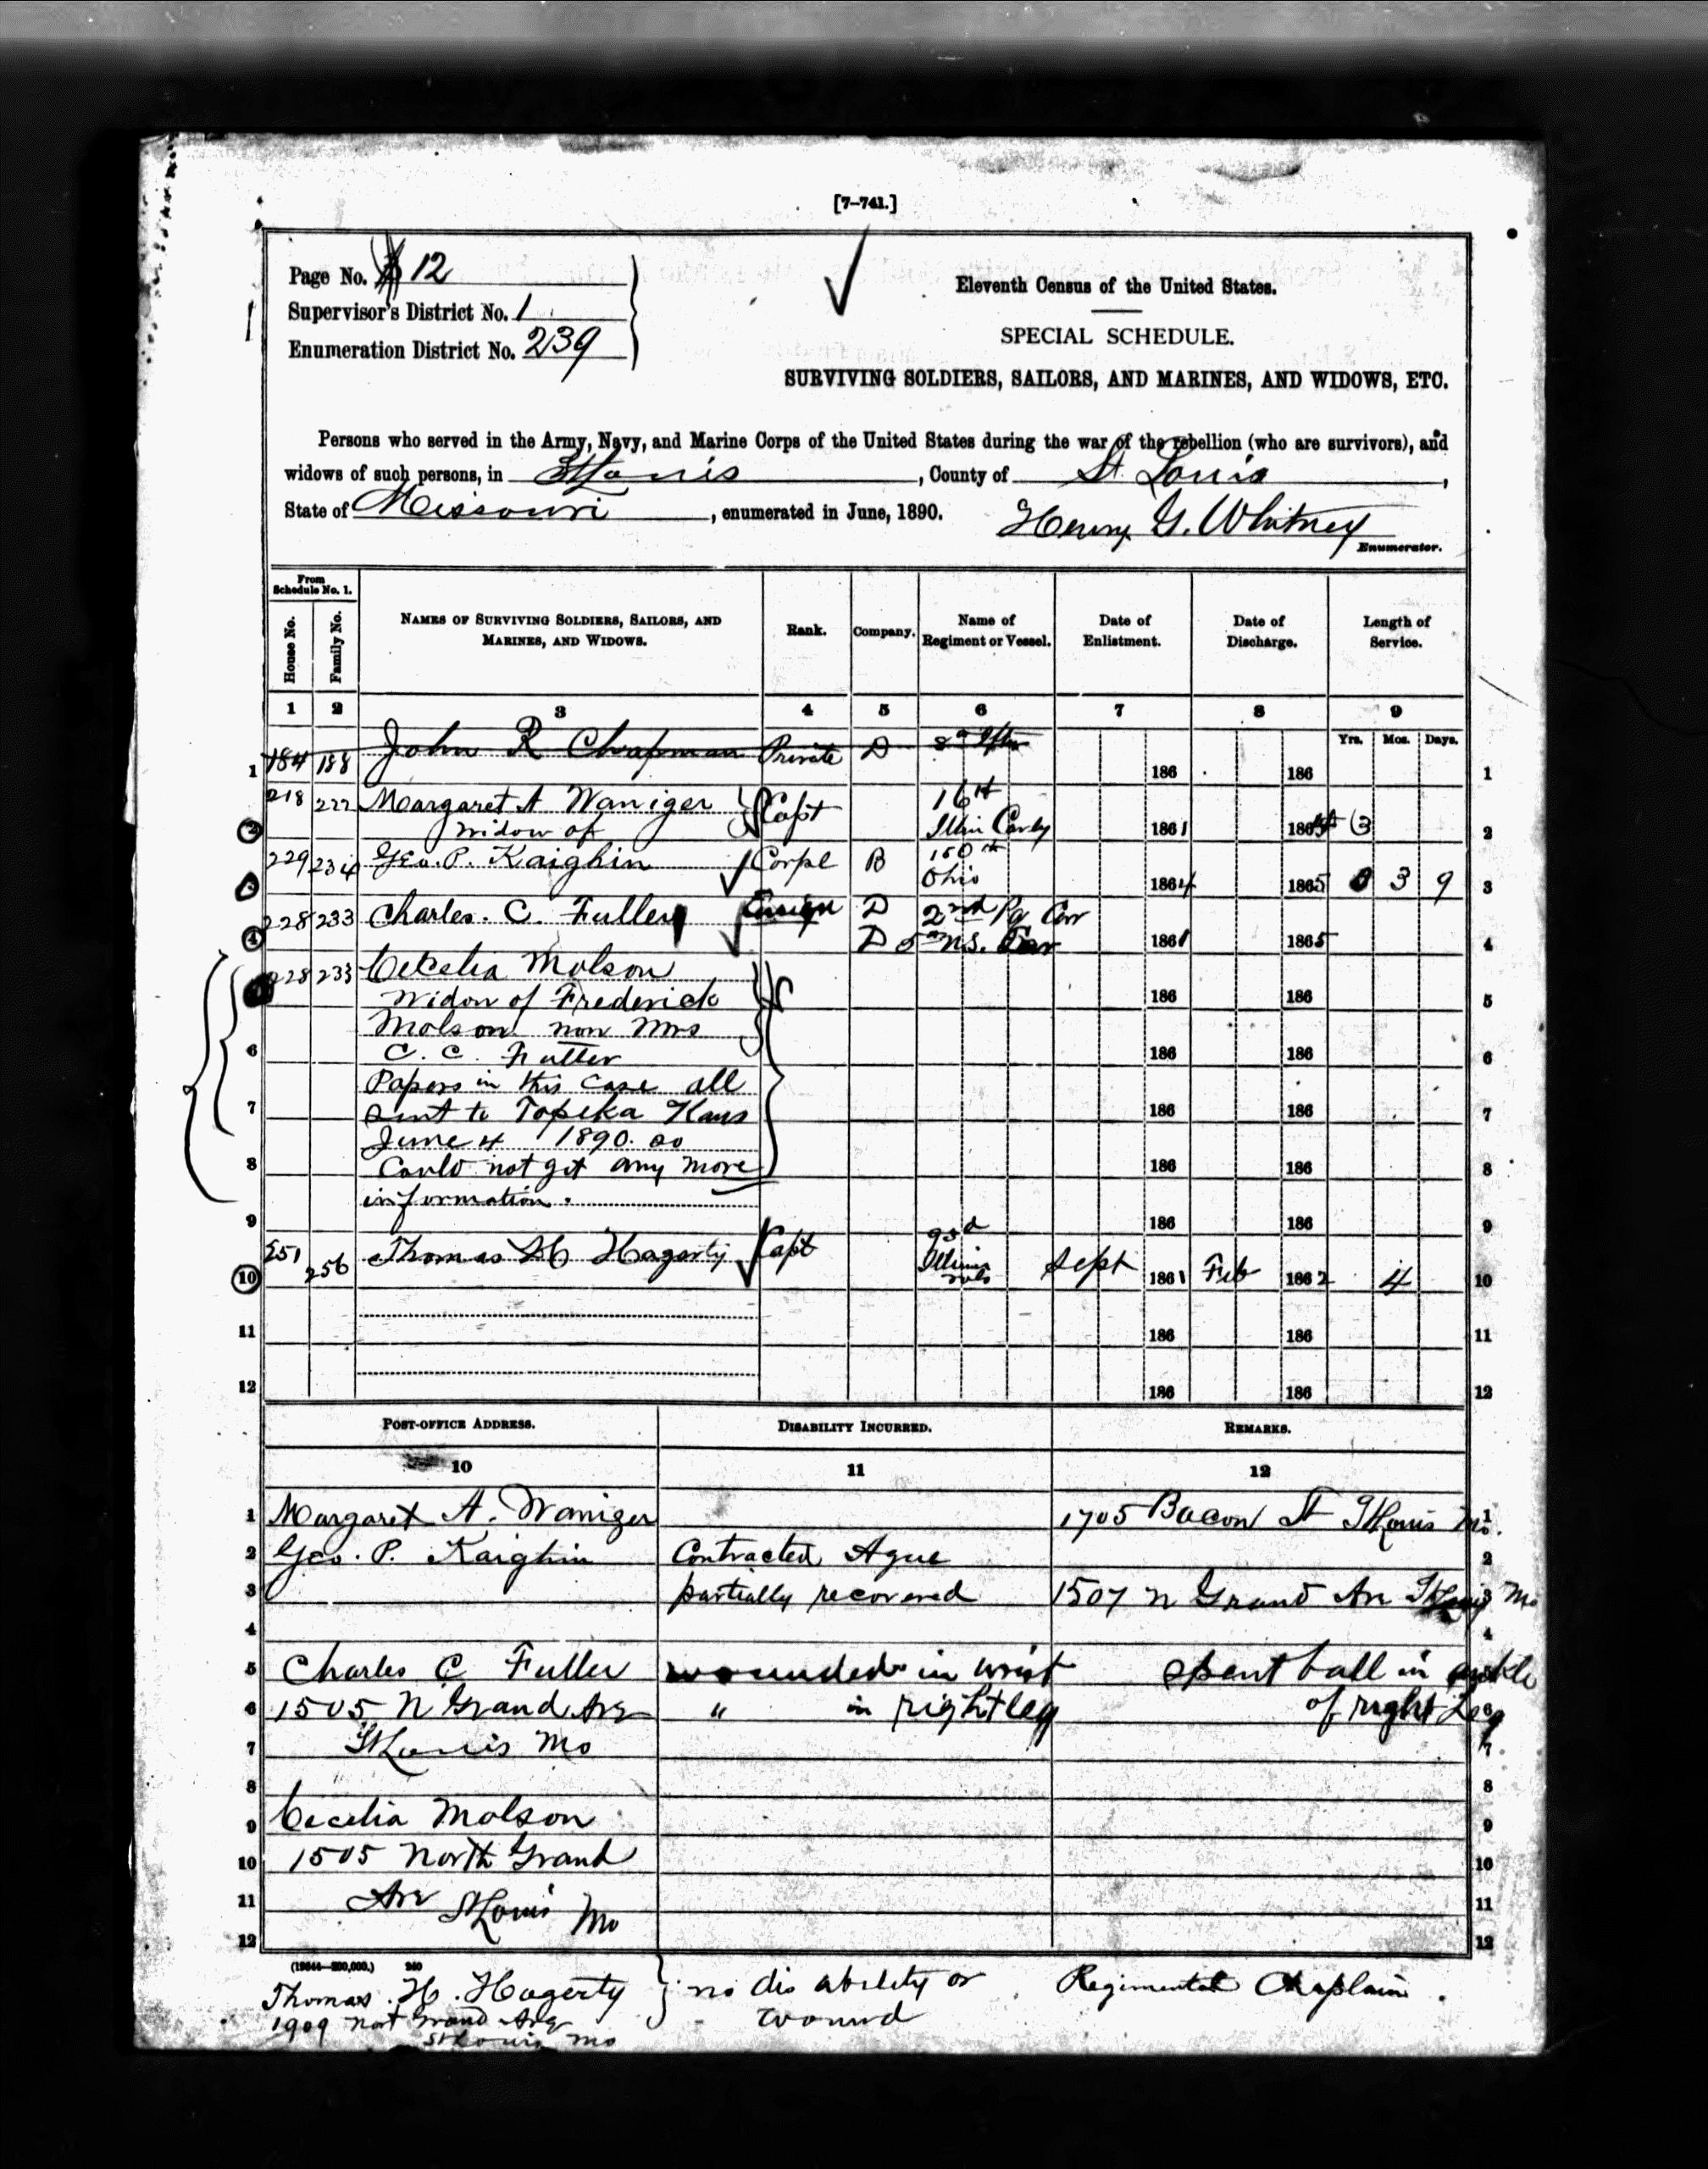 [7-741.]
Page No. 12
Supervisor's District No. 1
Enumeration District No. 239
Eleventh Census of the United States.
SPECIAL SCHEDULE.
SURVIVING SOLDIERS, SAILORS, AND MARINES, AND WIDOWS, ETC.
Persons who served in the Army, Navy, and Marine Corps of the United States during the war of the rebellion (who are survivors), and
widows of such persons, in St Louis, County of St. Louis,
State of Missouri, enumerated in June, 1890. Henry G. Whitney
Enumerator.
From Schedule No. 1.
House No. Family No. NAMES OF SURVIVING SOLDIERS, SAILORS, AND MARINES, AND WIDOWS. Rank. Company. Name of Regiment or Vessel. Date of Enlistment. Date of Discharge. Length of Service.
1 2 3 4 5 6 7 8 9
Yrs. Mos. Days.
1 184 188 John R Chapman Private D 186 186 1
218 222 Margaret A Waniger Capt 16th
2 Widow of Illin Cavly 1861 186 3 2
229 234 Geo. P. Kaighin Corpl B 150th
3 Ohio 1864 1865 0 3 9 3
228 233 Charles. C. Fuller Ensign D 2nd Pa Cav
4 D 5 1861 1865 4
228 233 Cecelia Molson
5 Widow of Frederick 186 186 5
Molson now Mrs
6 C. C. Fuller 186 186 6
Papers in this case all
7 sent to Topeka Kans 186 186 7
June 4 1890. so
8 Could not get any more 186 186 8
information.
9 186 186 9
251 256 Thomas H Hagerty Capt 93d
10 Illinois vols Sept 1861 Feb 1862 4 10
11 186 186 11
12 186 186 12
POST-OFFICE ADDRESS. DISABILITY INCURRED. REMARKS.
10 11 12
1 Margaret A. Waniger 1705 Bacon St St Louis Mo. 1
2 Geo. P. Kaighin Contracted Ague 2
3 partially recovered 1507 N Grand Av St Louis Mo 3
4 4
5 Charles C Fuller wounded in wrist spent ball in ankle
6 1505 N Grand Ave " in right leg of right Leg 6
7 St Louis Mo 7
8 8
9 Cecelia Molson 9
10 1505 North Grand 10
11 Ave St Louis Mo 11
12 12
(19644—200,000.) 240
Thomas. H. Hagerty no disability or Regimental Chaplain.
1909 Nort Grand Ave wound
St Louis Mo